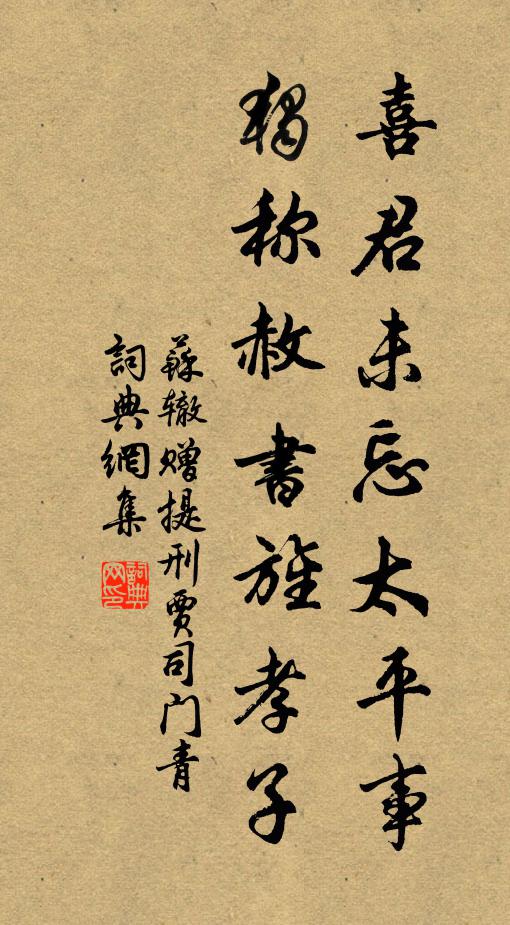 喜君未忘太平事
獨称赦書旌孝子
蘇辙赠提刑賈司门青
詞典網集
詞典网印